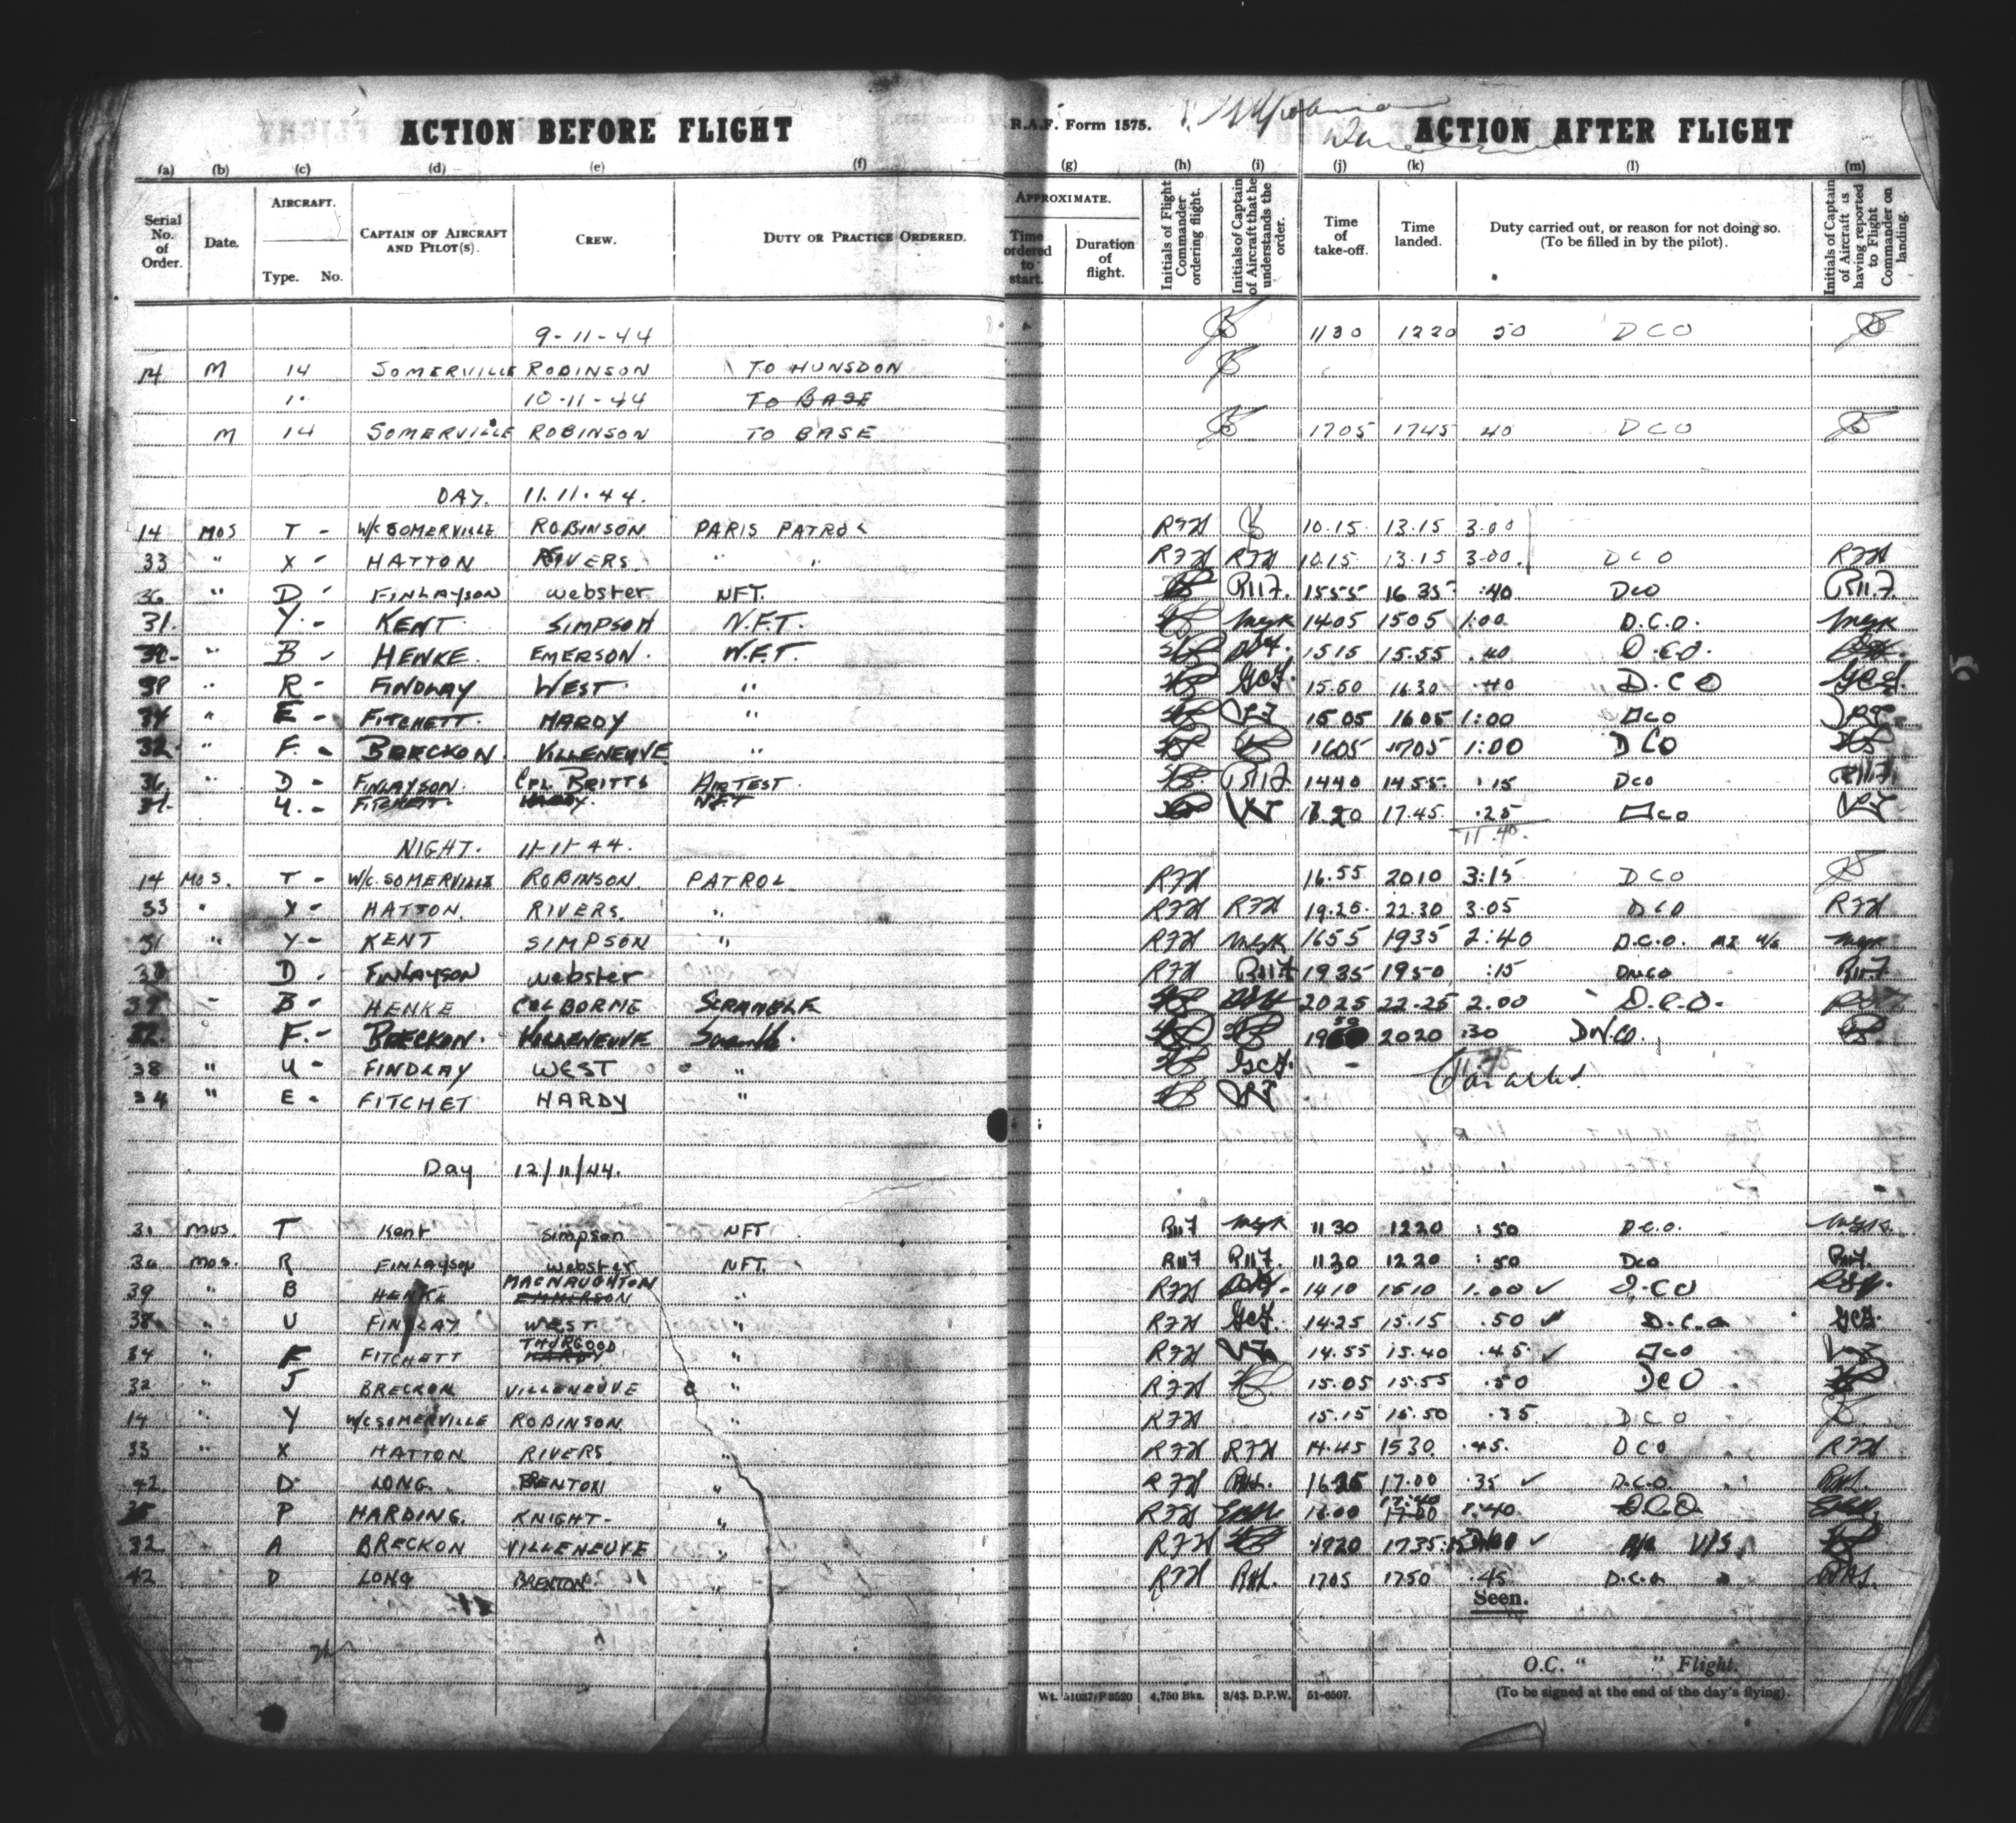 ACTION BEFORE FLIGHT R.A.F. Form 1575. ACTION AFTER FLIGHT
(a) (b) (c) (d) (e) (f) (g) (h) (i) (j) (k) (l) (m)
Serial No. of Order. Date. AIRCRAFT. Type. No. CAPTAIN OF AIRCRAFT AND PILOT(S). CREW. DUTY OR PRACTICE ORDERED. APPROXIMATE. Time ordered to start. Duration of flight. Initials of Flight Commander ordering flight. Initials of Captain of Aircraft that he understands the order. Time of take-off. Time landed. Duty carried out, or reason for not doing so. (To be filled in by the pilot). Initials of Captain of Aircraft as having reported to Flight Commander on landing.
9-11-44 1130 1220 50 DCO
14 M 14 SOMERVILLE ROBINSON TO HUNSDON
10-11-44 TO BASE
M 14 SOMERVILLE ROBINSON TO BASE 1705 1745 40 DCO
DAY. 11.11.44.
14 MOS T - W/C SOMERVILLE ROBINSON PARIS PATROL RFH 10.15 13.15 3.00
33 " X - HATTON RIVERS. " " RFH RFH 10.15 13.15 3.00. DCO RFH
36 " D - FINLAYSON Webster NFT. 1555 16.35 :40 DCO
31. Y. - KENT SIMPSON N.F.T. 1405 1505 1:00 D.C.O.
" B - HENKE. EMERSON. N.F.T. 15.15 15.55 .40 D.CO.
" R - FINDLAY WEST. " 15.50 16.30 .40 D.CO
34 " E - FITCHETT. HARDY " 15.05 16.05 1:00 DCO
32 " F. - BRECKON. VILLENEUVE " 1605 1705 1:00 DCO
36 " D - FINLAYSON. CPL. BRITTS AIR TEST. 1440 1455. :15 DCO
- FITCHETT. HARDY. NFT 17.45. .25 DCO
11.40.
NIGHT. 11-11-44.
14 MOS. T - W/C. SOMERVILLE ROBINSON PATROL RFH 16.55 2010 3:15 DCO
33 " X - HATTON. RIVERS. " RFH RFH 19.25. 22.30 3.05 DCO RFH
31 " Y - KENT SIMPSON " RFH 1655 1935 2:40 D.C.O.
D - FINLAYSON Webster RFH 1935 1950 :15 DNCO
B - HENKE COLBORNE SCRAMBLE 2025 22.25 2.00 D.C.O.
32 F. - BRECKON. VILLENEUVE 2020 :30 DNCO.
38 " U - FINDLAY WEST " -
34 " E - FITCHET HARDY "
Day 12/11/44.
31 mos. T Kent Simpson NFT 1130 1220 :50 D.C.O.
36 mos. R FINLAYSON Webster NFT. 1130 1220 :50 DCO
39 " B HENKE MACNAUGHTON EMMERSON " RFH 1410 1510 1.00 ✓ D.CO
38 " U FINDLAY WEST. " RFH 14.25 15.15 .50 ✓ D.C.O
34 " F FITCHETT THURGOOD HARDY " RFH 14.55 15.40 .45 ✓ DCO
32 " J BRECKON VILLENEUVE " RFH 15.05 15.55 .50 DCO
14 " Y W/C SOMERVILLE ROBINSON " RFH 15.15 15.50 .35 DCO
33 " X HATTON RIVERS " RFH RFH 14.45 1530 .45. DCO RFH
42. D LONG. BRENTON " RFH 17.00 .35 ✓ D.C.O.
P HARDING. KNIGHT - " RFH 16.00 17:40 17.00 1:40. D.C.O
32 A BRECKON VILLENEUVE " RFH 1720 1735 ✓ A/C U/S
42 D LONG BRENTON " RFH 1705 1750 .45 D.C.O
Seen.
O.C. " " Flight.
Wt. 41037/P 3520 4,750 Bks. 3/43. D.P.W. 51-6507. (To be signed at the end of the day's flying).